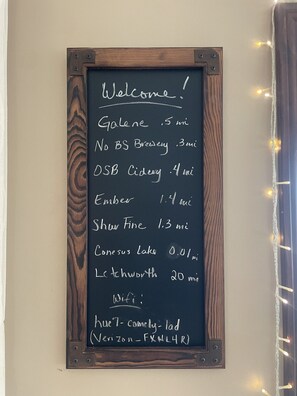 Welcome!
Galene .5 mi
No BS Brewery .3mi
OSB Cidery .4 mi
Ember 1.4 mi
Shur Fine 1.3 mi
Conesus Lake 0.01 mi
Letchworth 20 mi
Wifi:
hue7-comely-lad
(Verizon_FXNL4R)